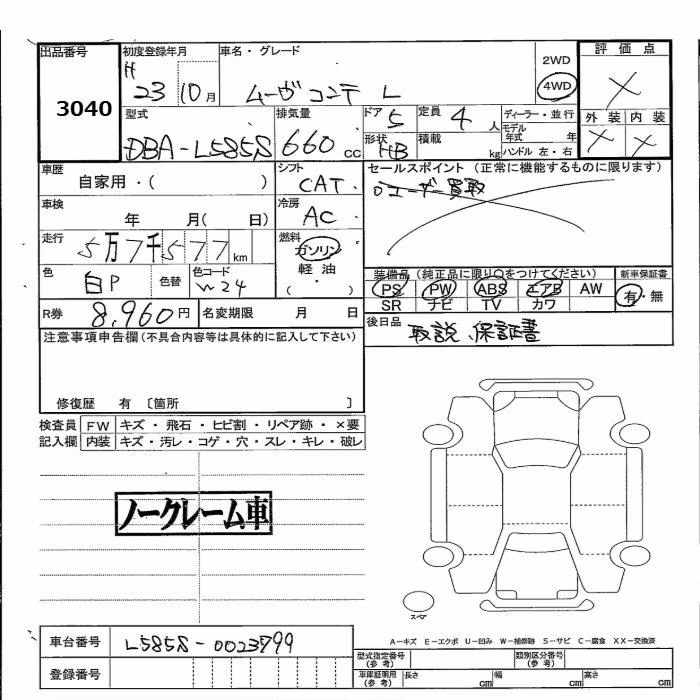 出品番号 初度登録年月 車名・グレード 評価点
3040 H 23 10月 ムーヴコンテ L 2WD 4WD X
型式 排気量 ドア 5 定員 4人 ディーラー・並行 外装 内装
DBA-L585S 660cc 形状 HB 積載 kg モデル年式 年 ハンドル 左・右 X X
車歴 自家用・( ) シフト CAT・ セールスポイント(正常に機能するものに限ります)
ユーザー買取
車検 年 月( 日) 冷房 AC
走行 5万7千577km 燃料 ガソリン 軽油 ( ・ )
色 白P 色替 色コード W24
装備品(純正品に限り○をつけてください) 新車保証書
PS PW ABS エアB AW 有・無
SR ナビ TV カワ
R券 8,960円 名変期限 月 日 後日品 取説、保証書
注意事項申告欄(不具合内容等は具体的に記入して下さい)
修復歴 有 〔箇所 〕
検査員 FW キズ・飛石・ヒビ割・リペア跡・×要
記入欄 内装 キズ・汚レ・コゲ・穴・スレ・キレ・破レ
ノークレーム車
スペア
A-キズ E-エクボ U-凹み W-補修跡 S-サビ C-腐食 XX-交換済
車台番号 L585S-0023799
型式指定番号(参考) 類別区分番号(参考)
登録番号
車庫証明用(参考) 長さ cm 幅 cm 高さ cm